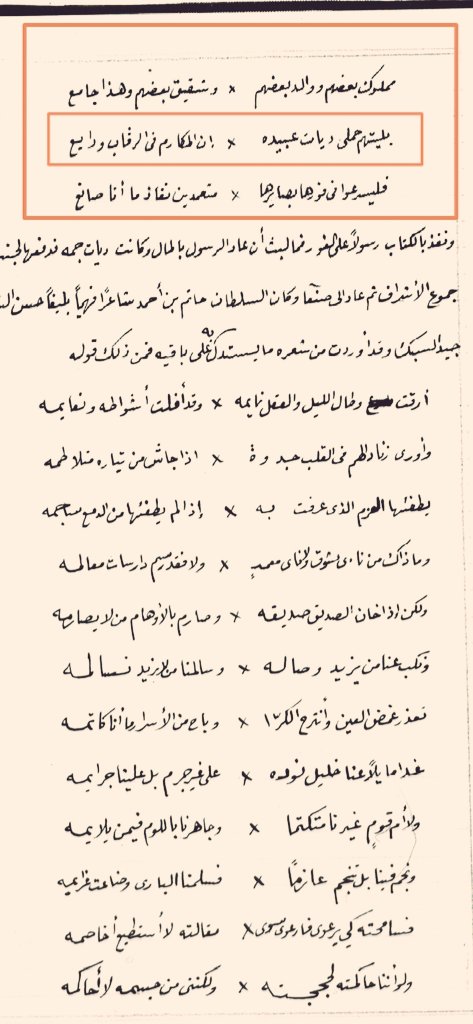 مملوك بعضهم ووالد بعضهم × وشقيق بعضهم وهذا جامع
بليتهم حملى ديات عبيده × ان المكارم فى الرقاب ودايع
فليسرعوا فى فورها بصايرها × متعمدين نفاذ ما أنا صانع
ونفذ بالكتاب رسولاً على الفور فما لبث أن عاد الرسول بالمال وكانت ديات جمه فدفعها
جموع الأشراف ثم عاد الى صنعا وكان السلطان حاتم بن أحمد شاعراً فهماً بليغاً حسن
جيد السبك وقد أوردت من شعره ما يستدل به على باقيه فمن ذلك قوله
أرقت وطال الليل والعقل نايمه × وقد أقلت أشواطه ونعايمه
وأورى زناد الهم فى القلب جدوة × اذا جاش من تياره متلاطمه
يطفئها الهزم الذى عرفت به × إذ الم يطفئها من الدمع ساجمه
وما ذاك من ناءى يشوق ولا ناى معمد × ولا فقد رسم دارسات معالمه
ولكن إذا خان الصديق صديقه × وصارم بالأوهام من لا يصارمه
ونكب عنا من يزيد وصاله × وسالمنا من لا يزيد نسالمه
تعذر غمض العين وأنتزح الكرا × وباح من الأسرار ما أنا كاتمه
غداما بلا عنا خليل نوده × على غير جرم بل علينا جرايمه
ولا أم قوم غيرنا متكتما × وجاهرنا باللوم فيمن يلايمه
ونجم فينا بل تنجم عازماً × فسلمنا البارى وضاعت عزايمه
فسامحته كى يرعوى فارعوى سوى × مقالته لا أستطيع أخاصمه
ولو أننا حاكمته لحججته × ولكننى من جسمه لا أحاكمه